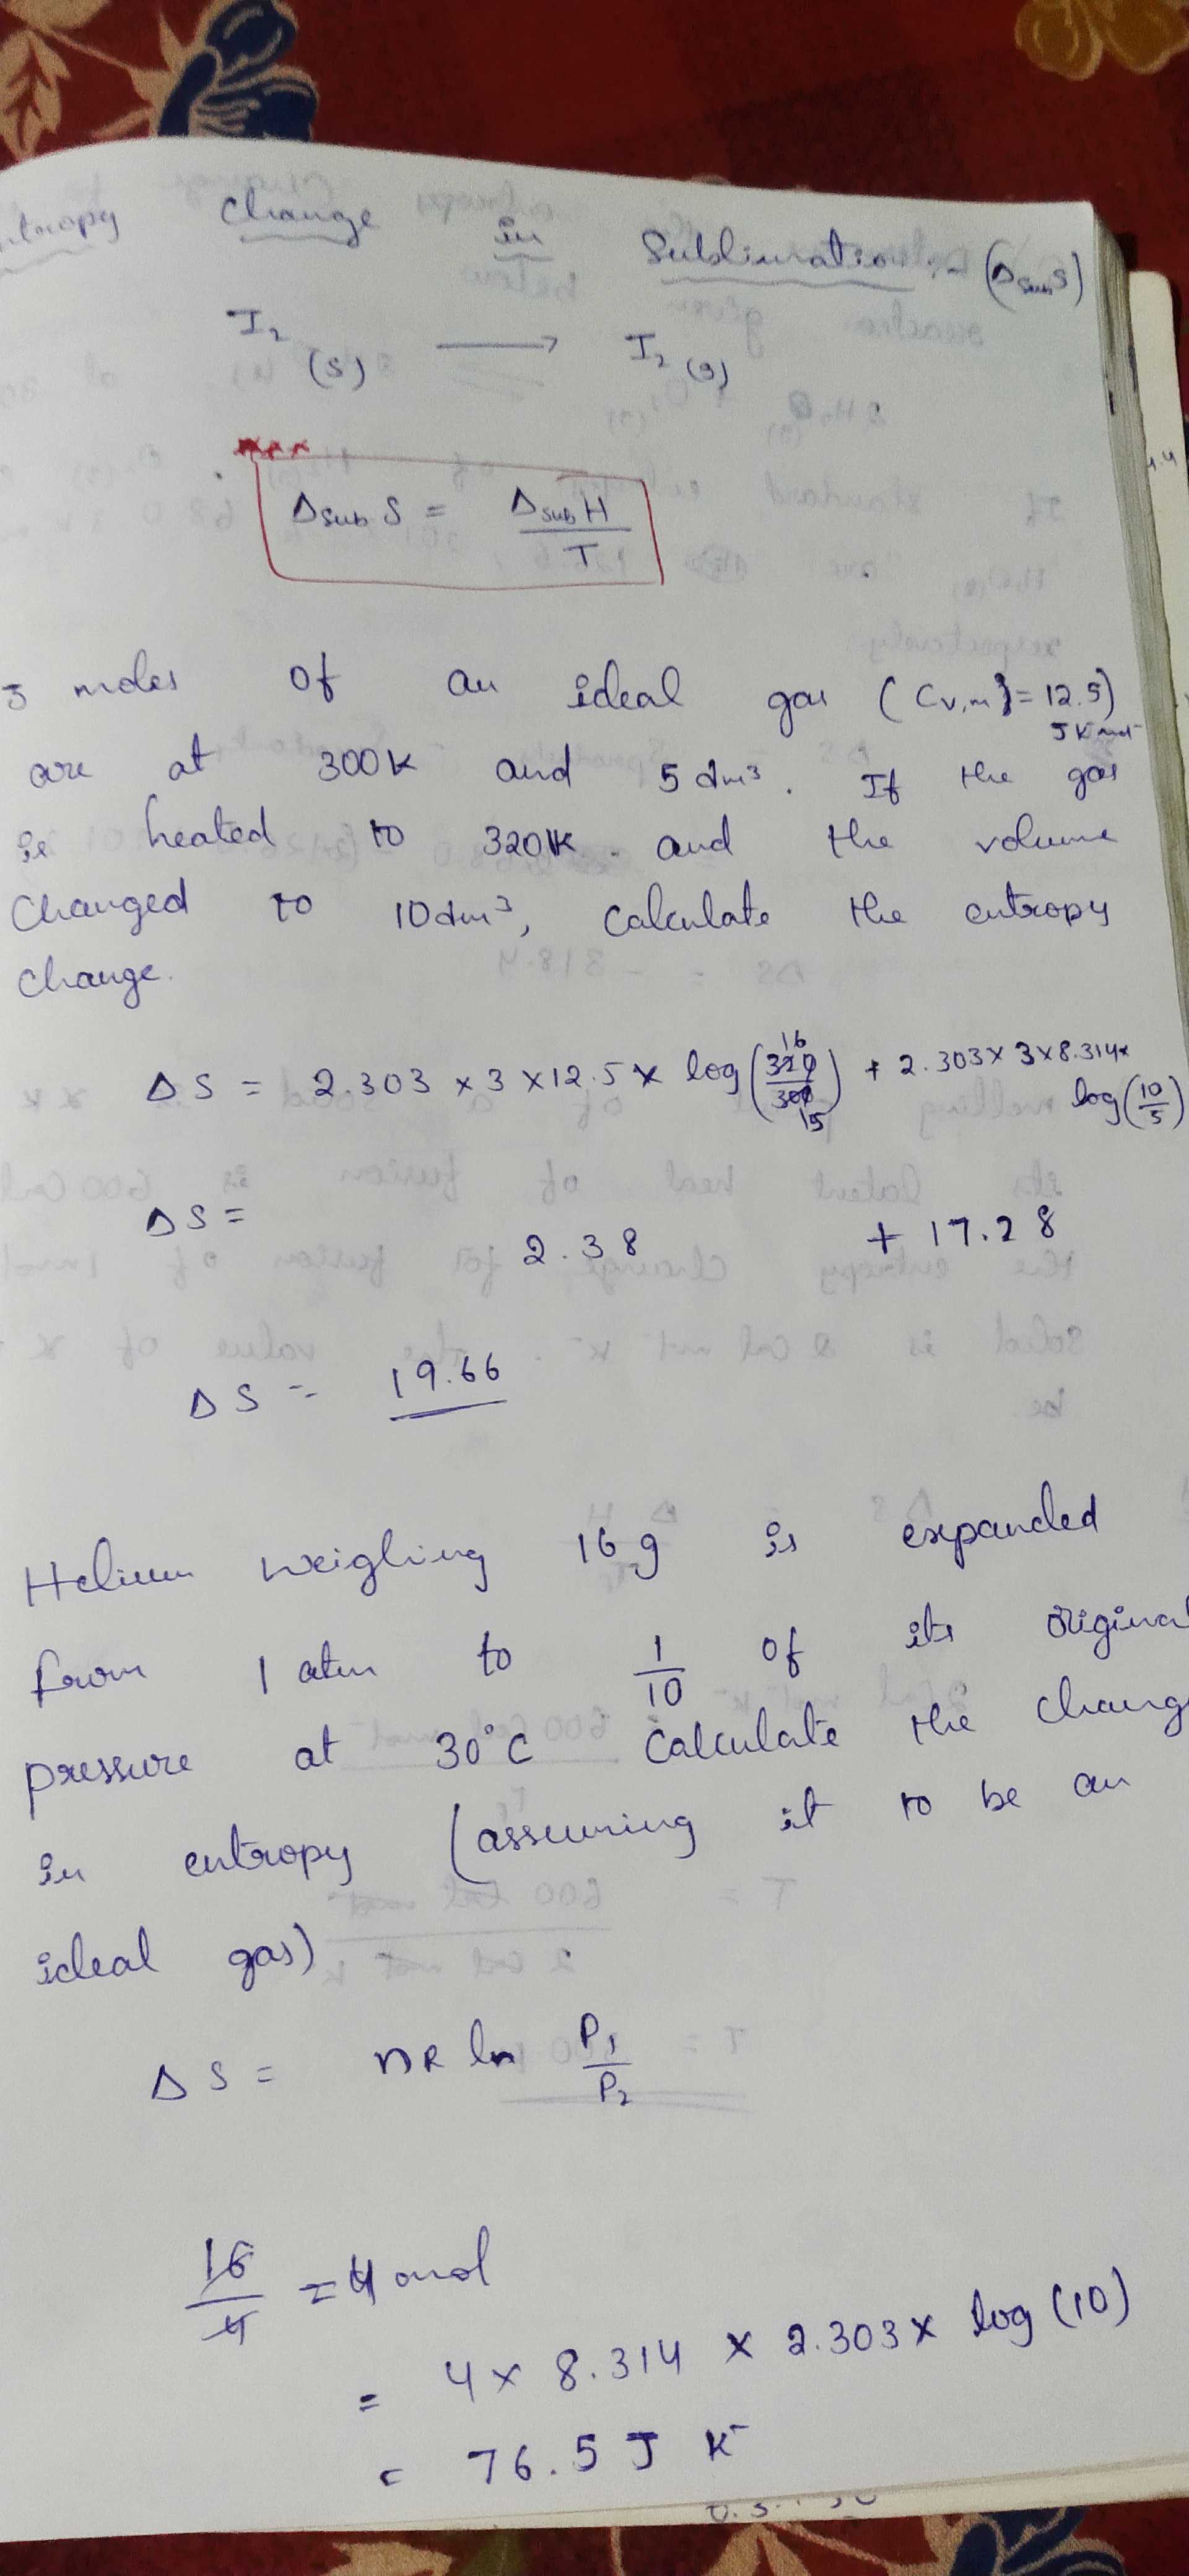 Change in Sublimation :- (ΔsubS)
I₂ (s) ⟶ I₂ (g)
Δsub S = Δsub H / T
3 moles of an ideal gas (Cv,m = 12.5)
J K⁻ mol⁻
are at 300K and 5 dm³. If the gas
is heated to 320K. and the volume
Changed to 10dm³, Calculate the entropy
Change.
ΔS = 2.303 × 3 × 12.5 × log(320/300) + 2.303 × 3 × 8.314 ×
16
15
log(10/5)
ΔS = 2.38 + 17.28
ΔS = 19.66
Helium weighing 16 g is expanded
from 1 atm to 1/10 of its original
pressure at 30°C Calculate the
in entropy (assuming it to be an
ideal gas)
ΔS = nR ln P₁/P₂
16/4 = 4 mol
= 4 × 8.314 × 2.303 × log (10)
= 76.5 J K⁻